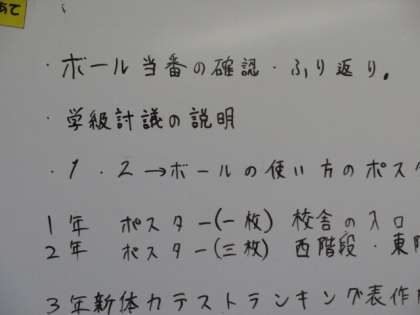 あて
・ボール当番の確認・ふり返り。
・学級討議の説明
・1・2→ボールの使い方のポスタ
1年 ポスター(一枚) 校舎の入口
2年 ポスター(三枚) 西階段・東階
3年新体力テストランキング表作